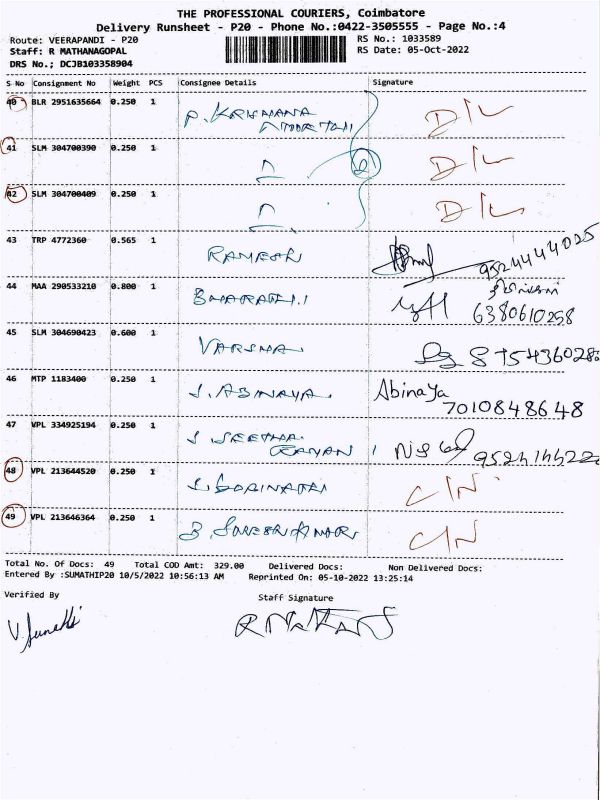 THE PROFESSIONAL COURIERS, Coimbatore
Delivery Runsheet - P20 - Phone No.:0422-3505555 - Page No.:4
Route: VEERAPANDI - P20 RS No.: 1033589
Staff: R MATHANAGOPAL RS Date: 05-Oct-2022
DRS No.; DCJB103358904
S No Consignment No Weight PCS Consignee Details Signature
40 BLR 2951635664 0.250 1 P. KRISHANA D/L
41 SLM 304700390 0.250 1 2 D/L
42 SLM 304700409 0.250 1 D/L
43 TRP 4772360 0.565 1 RAMESH 9524444025
44 MAA 290533210 0.800 1 BHARATHI.I 6380610258
45 SLM 304690423 0.600 1 VARSHA
46 MTP 1183400 0.250 1 S. ABINAYA. Abinaya
7010848648
47 VPL 334925194 0.250 1 S SEETHA
RAMAN
48 VPL 213644520 0.250 1 S. GOPINATH C/N
49 VPL 213646364 0.250 1 B. SURESH KUMAR C/N
Total No. Of Docs: 49 Total COD Amt: 329.00 Delivered Docs: Non Delivered Docs:
Entered By :SUMATHIP20 10/5/2022 10:56:13 AM Reprinted On: 05-10-2022 13:25:14
Verified By Staff Signature